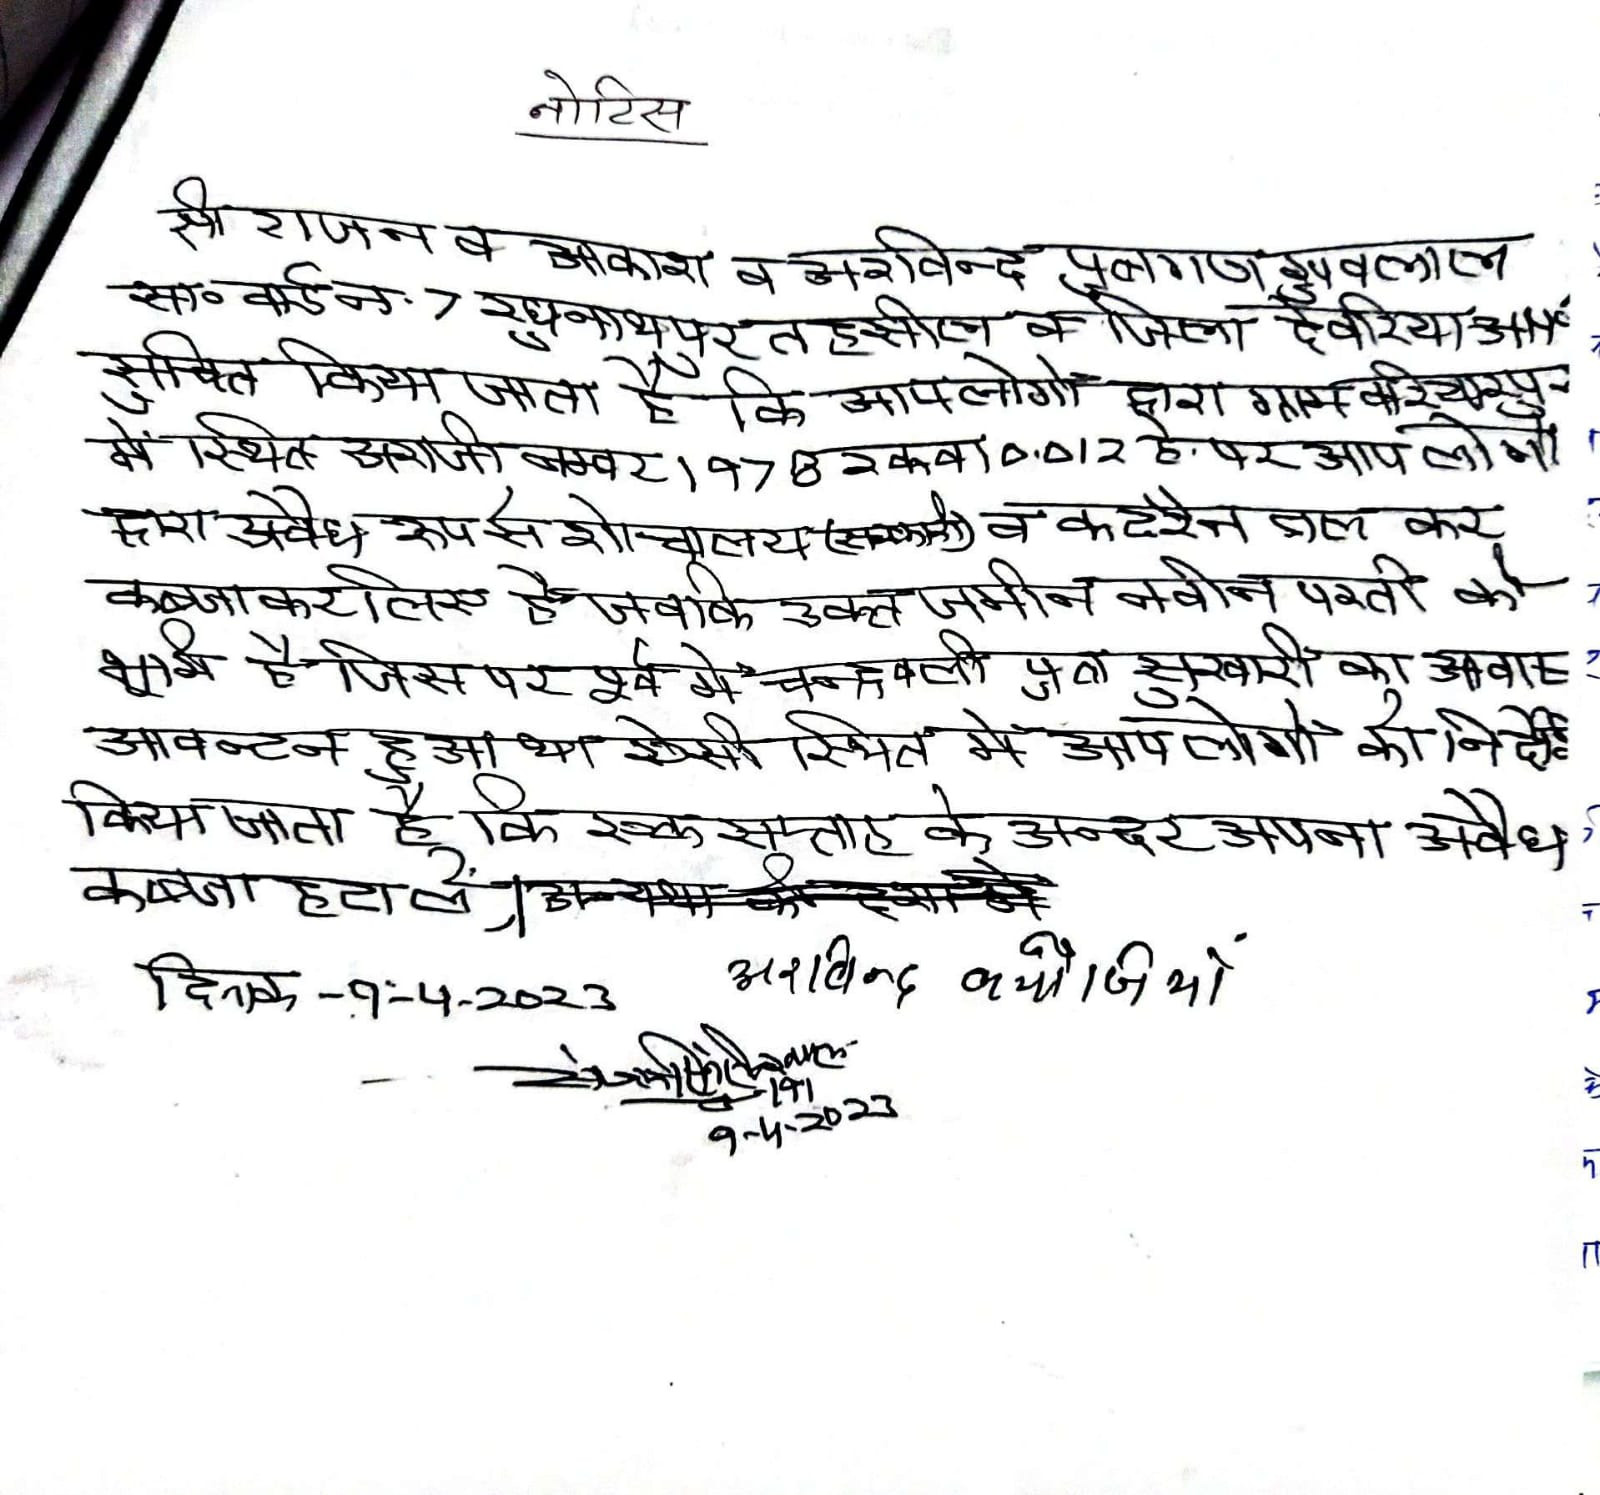 नोटिस
श्री राजन व आकाश व अरविन्द पुत्रगण शुवलाल
सा० वार्ड न. 7 रघुनाथपुर तहसील व जिला देवरिया आप
सुचित किया जाता है कि आपलोगों द्वारा ग्राम वरियारपु
में स्थित अराजी नम्बर 1978 रकबा 0.012 हे. पर आप लोगों
द्वारा अवैध रूप से शौचालय (सरकारी) व कटरैन डाल कर
कब्जा कर लिए है जबकि उक्त जमीन नवीन परती की
भूमि है जिस पर पूर्व में चन्द्रवली पुत्र सुखारी का आवास
आवन्टन हुआ था ऐसी स्थित में आप लोगों को निर्दे
किया जाता है कि एक सप्ताह के अन्दर अपना अवैध
कब्जा हटा लें। अन्यथा की दशा में
दिनांक -9-4-2023 अरविन्द
9-4-2023